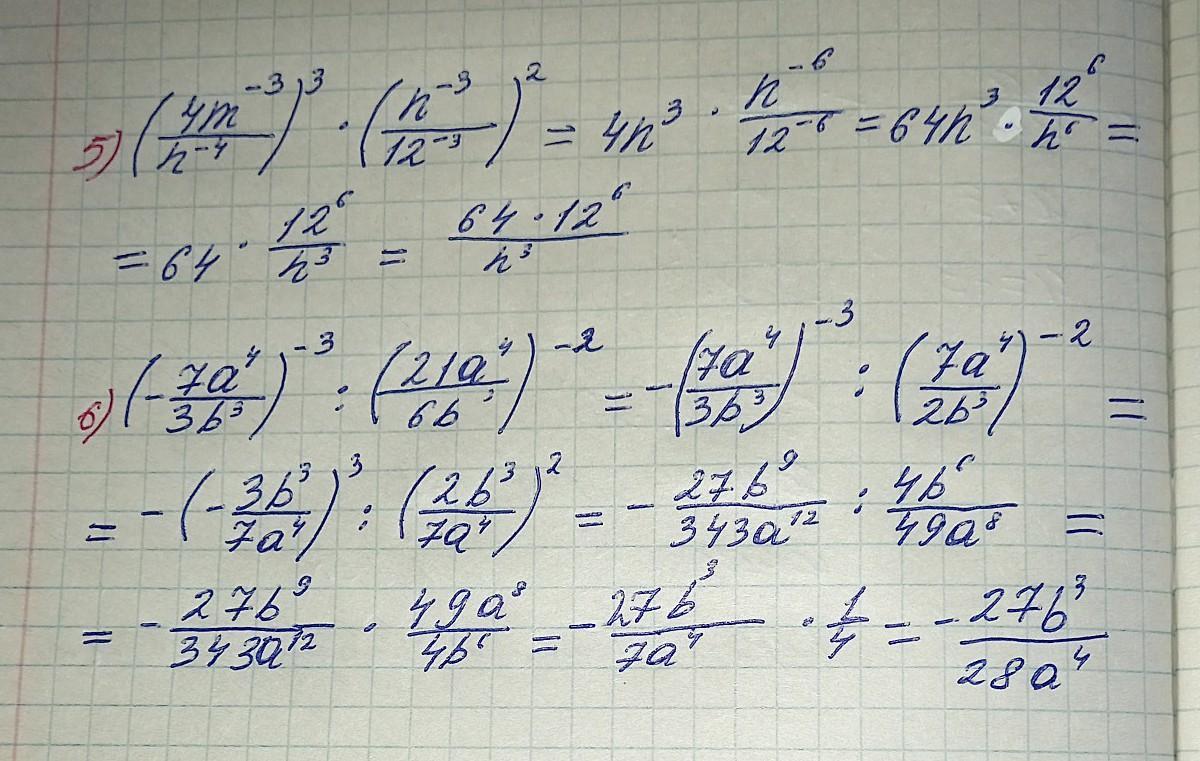 5) (4m^-3/n^-4)^3 · (n^-3/12^-3)^2 = 4n^3 · n^-6/12^-6 = 64n^3 · 12^6/n^6 =
= 64 · 12^6/n^3 = 64 · 12^6/n^3
6) (-7a^4/3b^3)^-3 : (21a^4/6b^3)^-2 = -(7a^4/3b^3)^-3 : (7a^4/2b^3)^-2 =
= -(-3b^3/7a^4)^3 : (2b^3/7a^4)^2 = -27b^9/343a^12 : 4b^6/49a^8 =
= -27b^9/343a^12 · 49a^8/4b^6 = -27b^3/7a^4 · 1/4 = -27b^3/28a^4